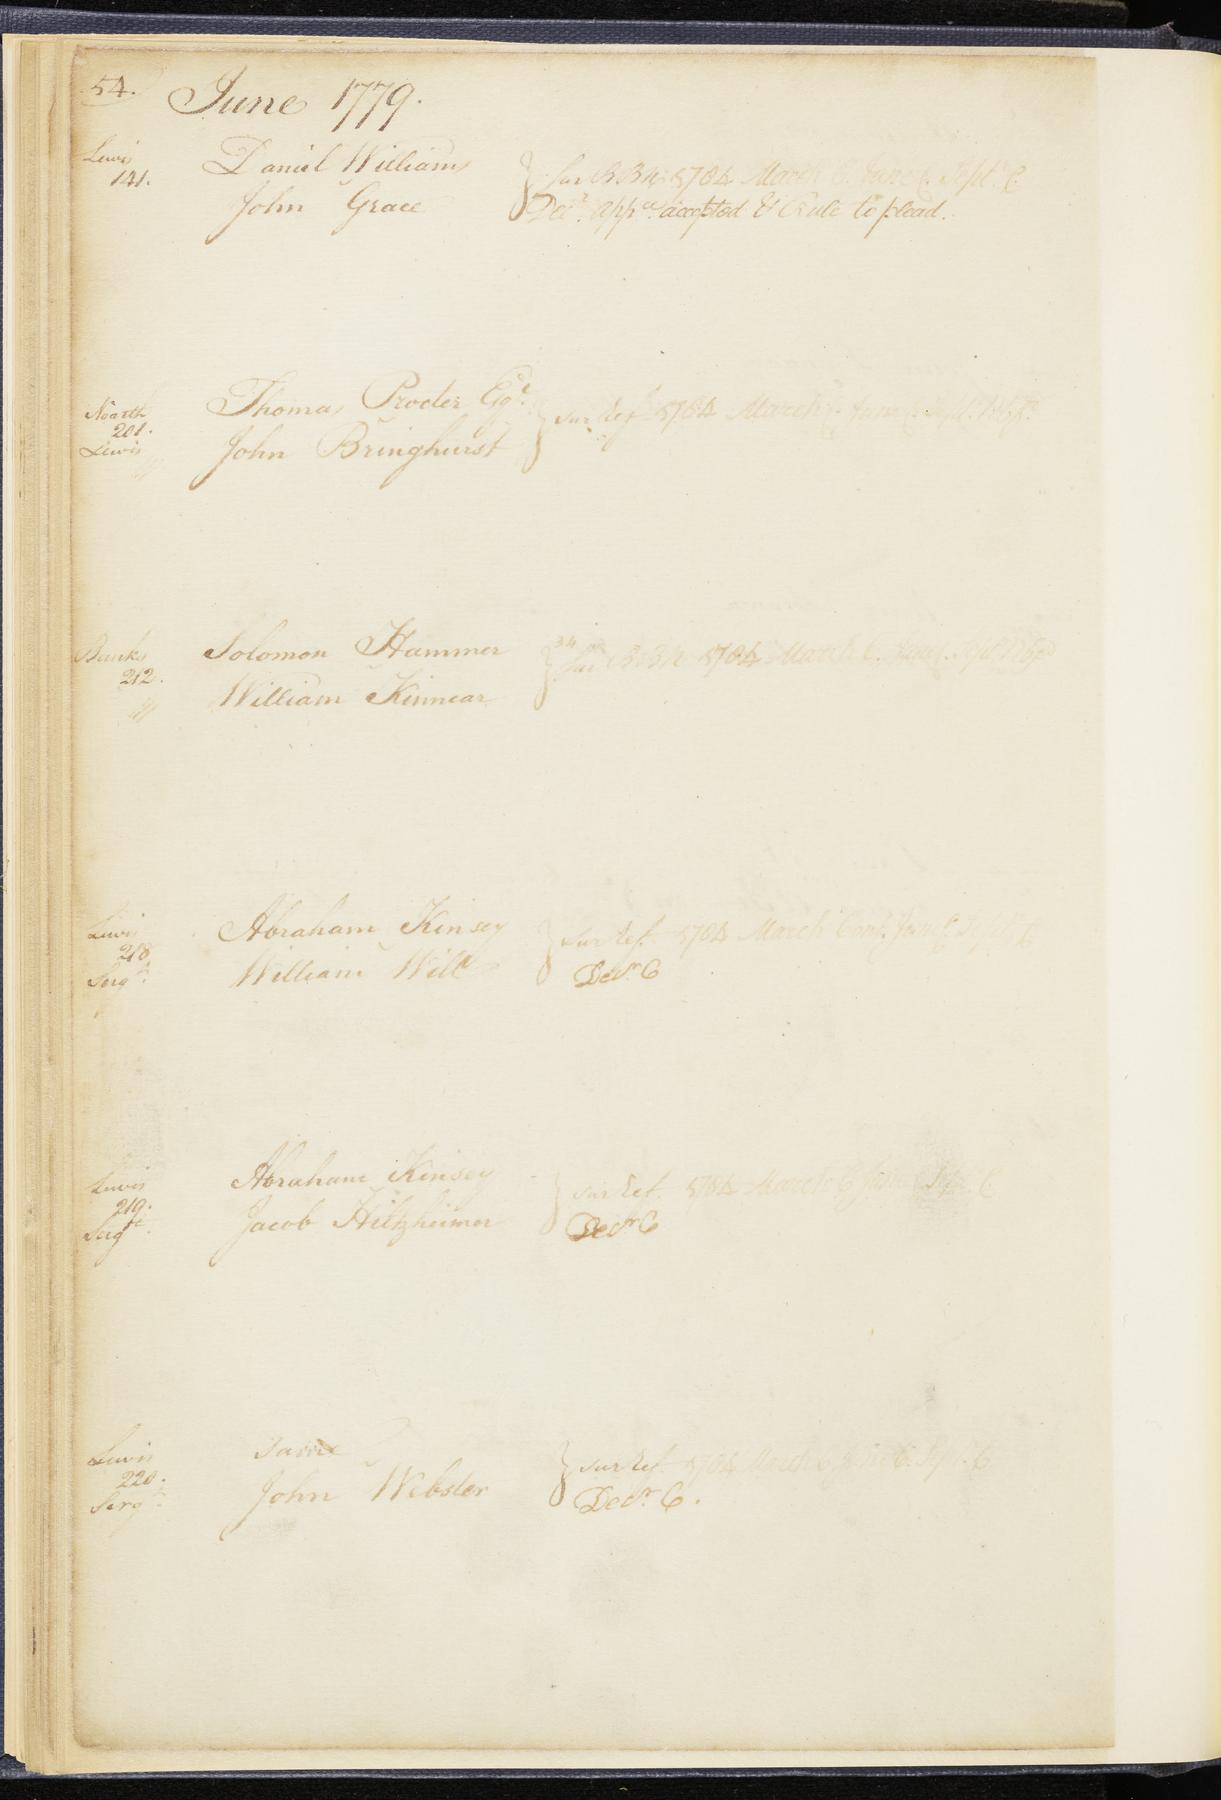 54. June 1779.
Lewis
141.
Daniel Williams
John Grace
Sur 5704 March June C. Sept. C.
Decr. appce. accepted & Rule to plead.
North
201.
Lewis
Thomas Procter Esqr.
John Bringhurst
Sur Ref. 5704 March
Banks
212.
Solomon Hammer
William Kinnear
5704 March C.
Lewis
218.
Sergt.
Abraham Kinsey
William Will
Sur Ref. 5704 March Cont. June C.
Decr. C
Lewis
219.
Sergt.
Abraham Kinsey
Jacob Hiltzheimer
Sur Ref. 5704 March C June C Sept. C
Decr. C
Lewis
220.
Sergt.
Same
John Webster
Sur Ref. 5704 March C June C. Sept. C
Decr. C.